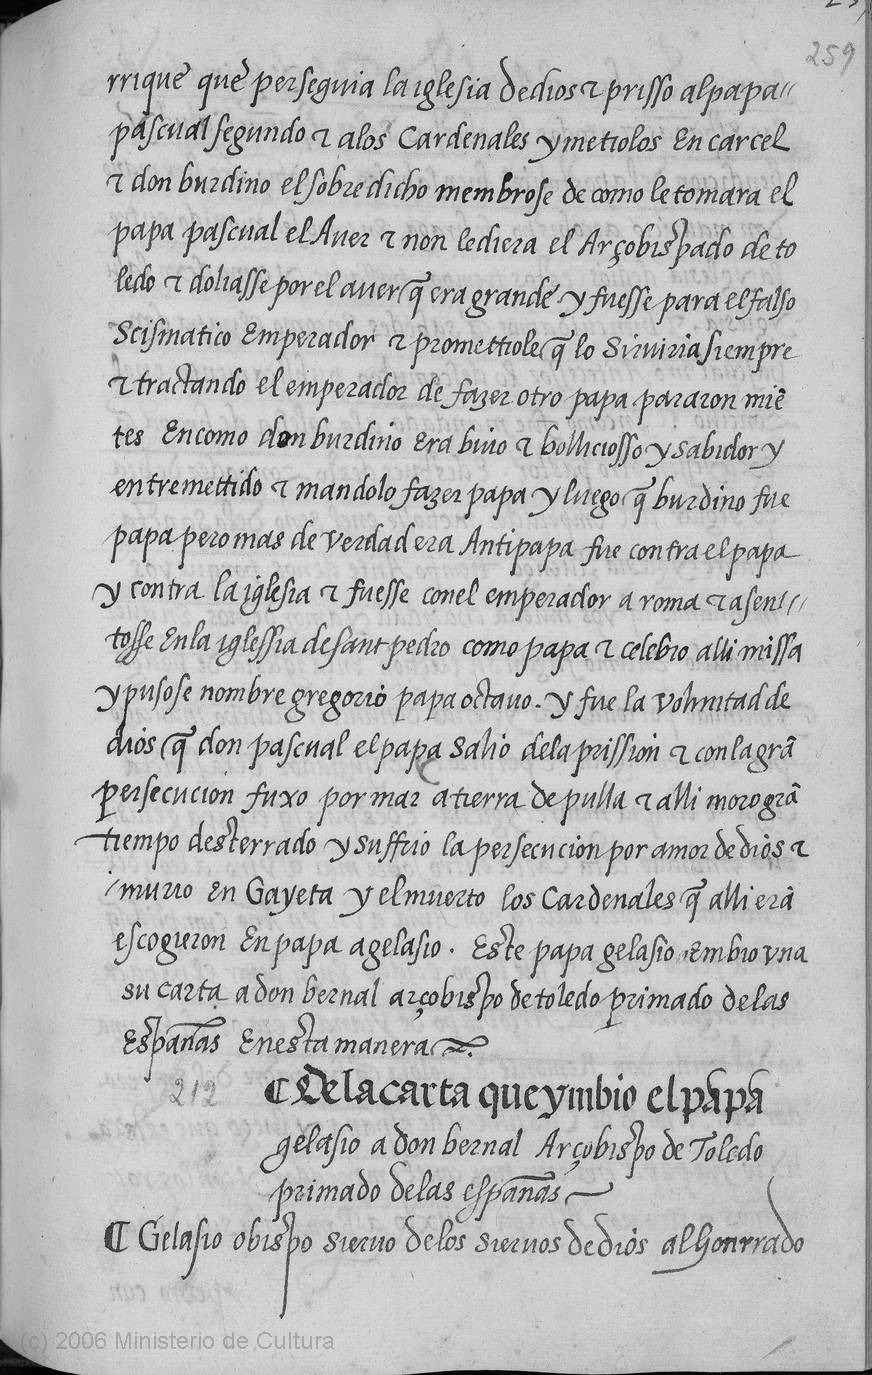 259
rrique que perseguia la iglesia de dios ⁊ prisso al papa
pascual segundo ⁊ a los Cardenales y metiolos En carcel
⁊ don burdino el sobre dicho membrose de como le tomara el
papa pascual el Auer ⁊ non le diera el Arçobispado de to
ledo ⁊ doliasse por el auer q̃ era grande y fuesse para el falso
Scismatico Emperador ⁊ promettiole q̃ lo Siruiria siempre
⁊ tractando el emperador de fazer otro papa pararon miẽ
tes En como don burdino Era biuo ⁊ bolliciosso y sabidor y
entremettido ⁊ mandolo fazer papa y luego q̃ burdino fue
papa pero mas de verdad era Antipapa fue contra el papa
y contra la iglesia ⁊ fuesse con el emperador a roma ⁊ asen
tosse En la iglessia de sant pedro como papa ⁊ celebro alli missa
y pusose nombre gregorio papa octauo. y fue la voluntad de
dios q̃ don pascual el papa salio de la prission ⁊ con la grã
persecucion fuxo por mar a tierra de pulla ⁊ alli moro grã
tiempo desterrado y suffrio la persecucion por amor de dios ⁊
murio en Gayeta y el muerto los Cardenales q̃ alli erã
escogieron En papa a gelasio. Este papa gelasio Embio vna
su carta a don bernal arçobispo de toledo primado de las
Españas En esta manera
212
¶ De la carta que ymbio el papa
gelasio a don bernal Arçobispo de Toledo
primado de las españas
¶ Gelasio obispo sieruo de los sieruos de dios al Honrrado
(c) 2006 Ministerio de Cultura